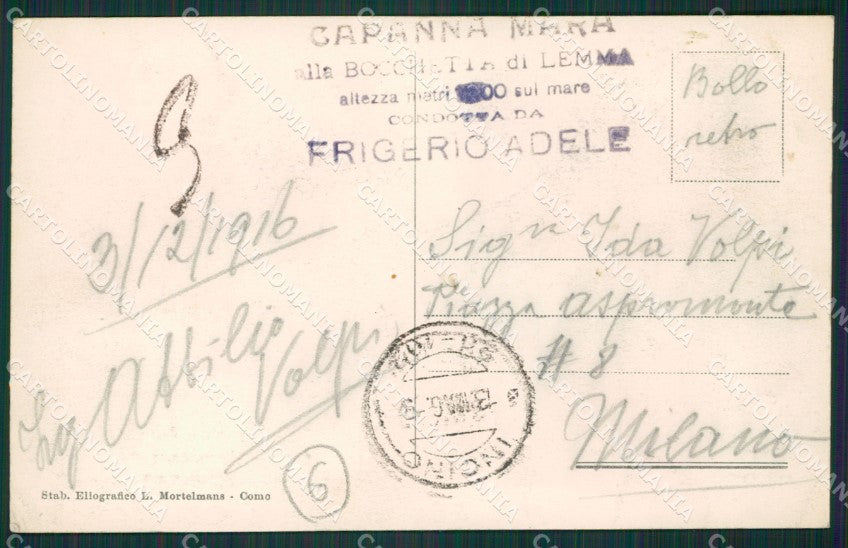 CAPANNA MARA
alla BOCCHETTA di LEMMA
altezza metri sul mare
CONDOTTA DA
FRIGERIO ADELE
Bollo
retro
3/12/1916
Ing Attilio
Volpi
Sigra Ida Volpi
Piazza Aspromonte
# 8
Milano
INCINO
6
Stab. Eliografico L. Mortelmans - Como
CARTOLINOMANIA